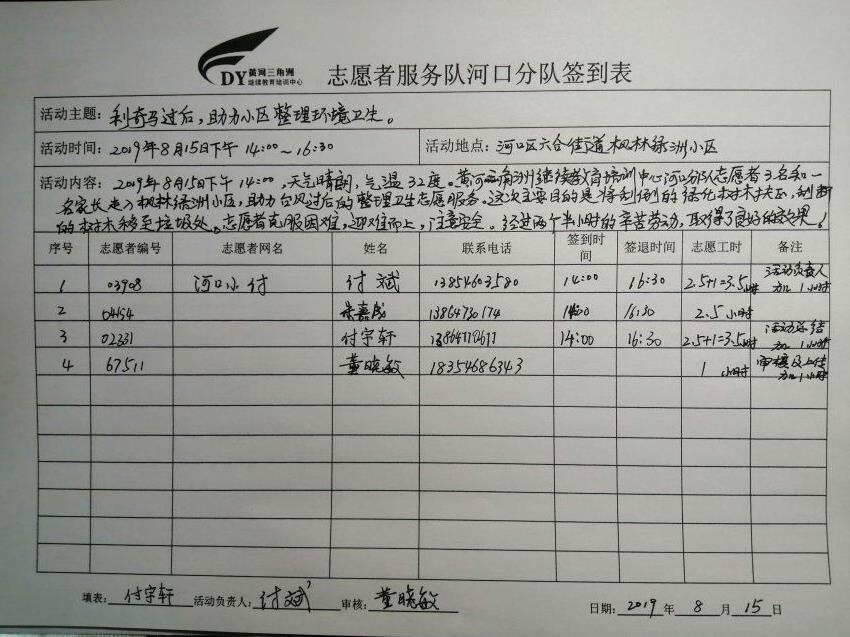 DY 黄河三角洲
继续教育培训中心
志愿者服务队河口分队签到表
活动主题: 利奇马过后,助力小区整理环境卫生。
活动时间: 2019年8月15日下午 14:00~16:30 活动地点: 河口区六合街道枫林绿洲小区
活动内容: 2019年8月15日下午14:00,天气晴朗,气温32度。黄河三角洲继续教育培训中心河口分队志愿者3名和一
名家长走入枫林绿洲小区,助力台风过后的整理卫生志愿服务。这次主要目的是将刮倒的绿化树木扶正,刮断
的树木移至垃圾处。志愿者克服困难,迎难而上,注意安全。经过两个半小时的辛苦劳动,取得了良好的效果!
序号 志愿者编号 志愿者网名 姓名 联系电话 签到时间 签退时间 志愿工时 备注
1 03908 河口小付 付斌 13854603580 14:00 16:30 2.5+1=3.5小时 活动负责人加1小时
2 朱嘉成 13864730174 14:00 16:30 2.5小时
3 02331 付宇轩 14:00 16:30 2.5+1=3.5小时 活动总结加1小时
4 67511 董晓敏 18354686343 1小时 审核及上传加1小时
填表: 付宇轩 活动负责人: 付斌 审核: 董晓敏 日期: 2019年8月15日